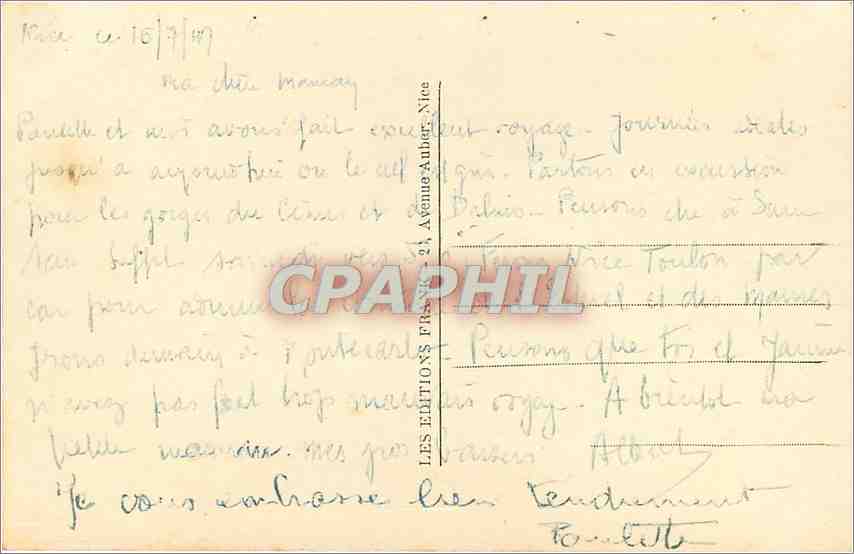 Nice ce 16/7/47
ma chère maman
Paulette et moi avons fait excellent voyage. Journées idéales
jusqu'à aujourd'hui où le ciel est gris. Partons en excursion
pour les gorges du Cians et de Daluis. Pensons être à
Nice Toulon par
car pour admirer et des maures
Irons demain à Montecarlo. Pensons que toi et
n'avez pas fait trop mauvais voyage. A bientôt ma
petite maman. mes gros baisers Albert
Je vous embrasse bien tendrement
Paulette
LES EDITIONS FRANK - 21, Avenue Auber, Nice
CPAPHIL